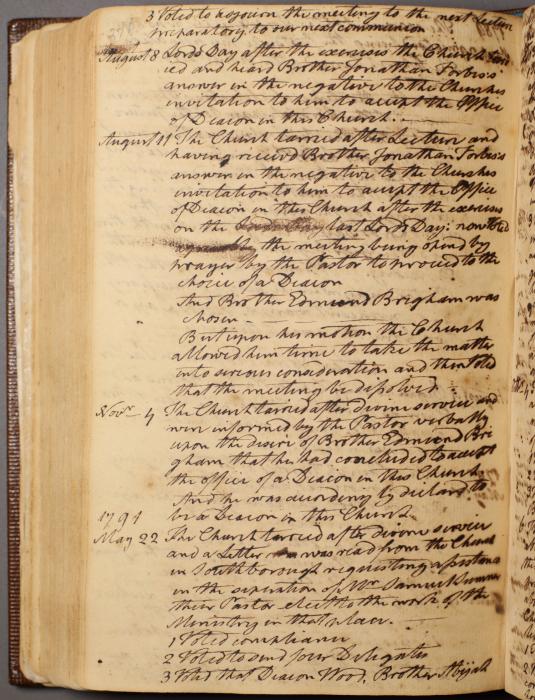 3 Voted to adjourn the meeting to the next Lecture
preparatory to our next communion
August 8 Lords Day after the exercises the Church tarr
ied and heard Brother Jonathan Forbes's
answer in the negative to the Churches
invitation to him to accept the Office
of Deacon in this Church. —
August 11 The Church tarried after Lecture and
having receivd Brother Jonathan Forbes's
answer in the negative to the Churches
invitation to him to accept the Office
of Deacon in this Church after the exercises
on the last Lords Day: now Voted
the meeting being opend by
prayer by the Pastor to proceed to the
choice of a Deacon
And Brother Edmund Brigham was
chosen —
But upon his motion the Church
allowed him time to take the matter
into serious consideration and then Voted
that the meeting be disolved —
Novr — 4 The Church tarried after divine service and
were informed by the Pastor verbally
upon the desire of Brother Edmund Bri
gham that he had concluded to accept
the office of a Deacon in this Church
And he was accordingly declared to
be a Deacon in this Church
1791
May 22 The Church tarried after divine service
and a Letter was read from the Church
in Southborough requesting assistance
in the seperation of Mr Samuel Sumner
their Pastor elect to the work of the
Ministry in that place. —
1 Voted compliance
2 Voted to send four Delegates
3 Voted that Deacon Wood, Brother Abijah